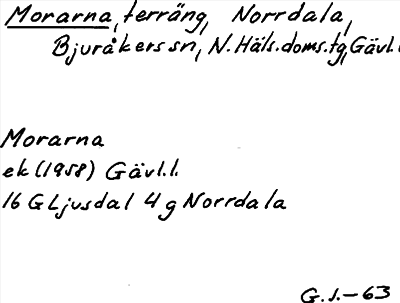 Morarna, terräng, Norrdala,
Bjuråkers sn, N. Häls. doms. tg, Gävl.
Morarna
ek (1958) Gävl.l.
16 G Ljusdal 4 g Norrdala
G. J. – 63